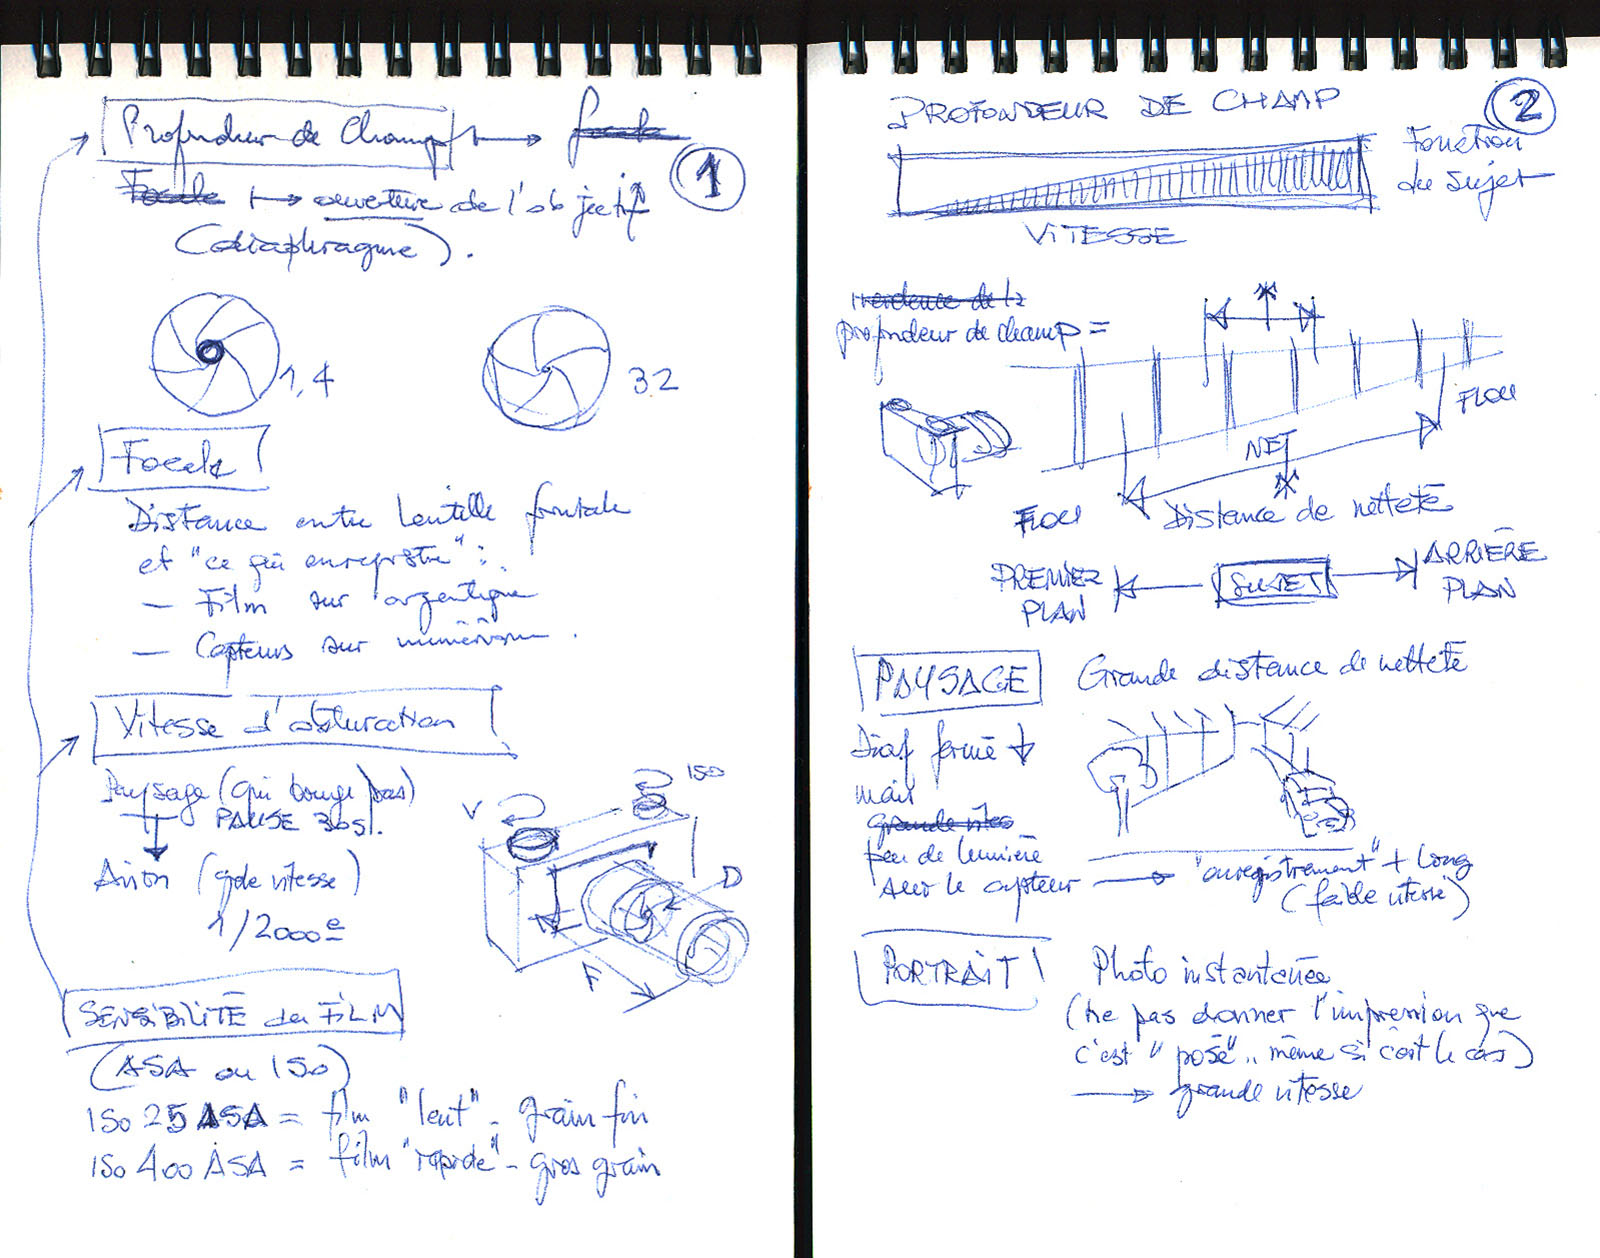 Profondeur de Champ
1
ouverture de l'objectif
(diaphragme).
1,4
32
Focale
Distance entre lentille frontale
et "ce qui enregistre" :
— Film sur argentique
— Capteurs sur numérique.
Vitesse d'obturation
Paysage (qui bouge pas)
PAUSE 30s.
Avion (gde vitesse)
1/2000e
V
ISO
D
F
SENSIBILITÉ du FILM
(ASA ou ISO)
ISO 25 ASA = film "lent" - grain fin
ISO 400 ASA = film "rapide" - gros grain
PROFONDEUR DE CHAMP
2
Fonction
du sujet
VITESSE
profondeur de champ =
FLOU
NET
FLOU
Distance de netteté
PREMIER
PLAN
SUJET
ARRIÈRE
PLAN
PAYSAGE
Grande distance de netteté
Diaf fermé
mais
peu de lumière
sur le capteur
"enregistrement" + long
(faible vitesse)
PORTRAIT
Photo instantanée
(ne pas donner l'impression que
c'est "posé".. même si c'est le cas)
grande vitesse